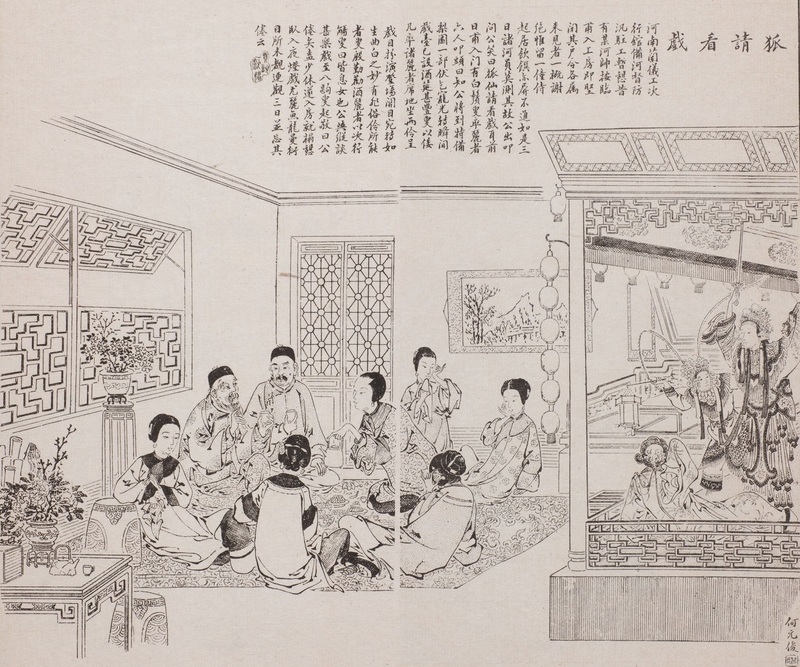 狐請看戲
河南蘭儀工次
行館備河督防
汛駐工暫憩昔
有某河帥按臨
甫入工房即堅
閉其戶令各屬
來見者一概謝
絕惟留一僮侍
起居飲饌亦屏不進如是三
日諸河員莫測其故公出叩
問公笑曰狐仙請看戲耳前
日甫入門有白鬚叟率麗者
六人叩頭曰知公將到特備
梨園一部伏乞寵光轉瞬間
戲臺已設酒筵甚豐叟以倭
几率諸麗者席地坐兩伶呈
戲目扮演登場関目宛轉如
生曲白之妙有非俗伶所能
者叟殷勤勸酒麗者以次行
觴叟曰皆息女也公與縱談
甚樂戲至八齣叟起敬曰公
倦矣盍少休遂入房就榻憩
臥入夜燈戲尤麗魚龍曼衍
目所未覩連觀三日並忘其
倦云
何元俊